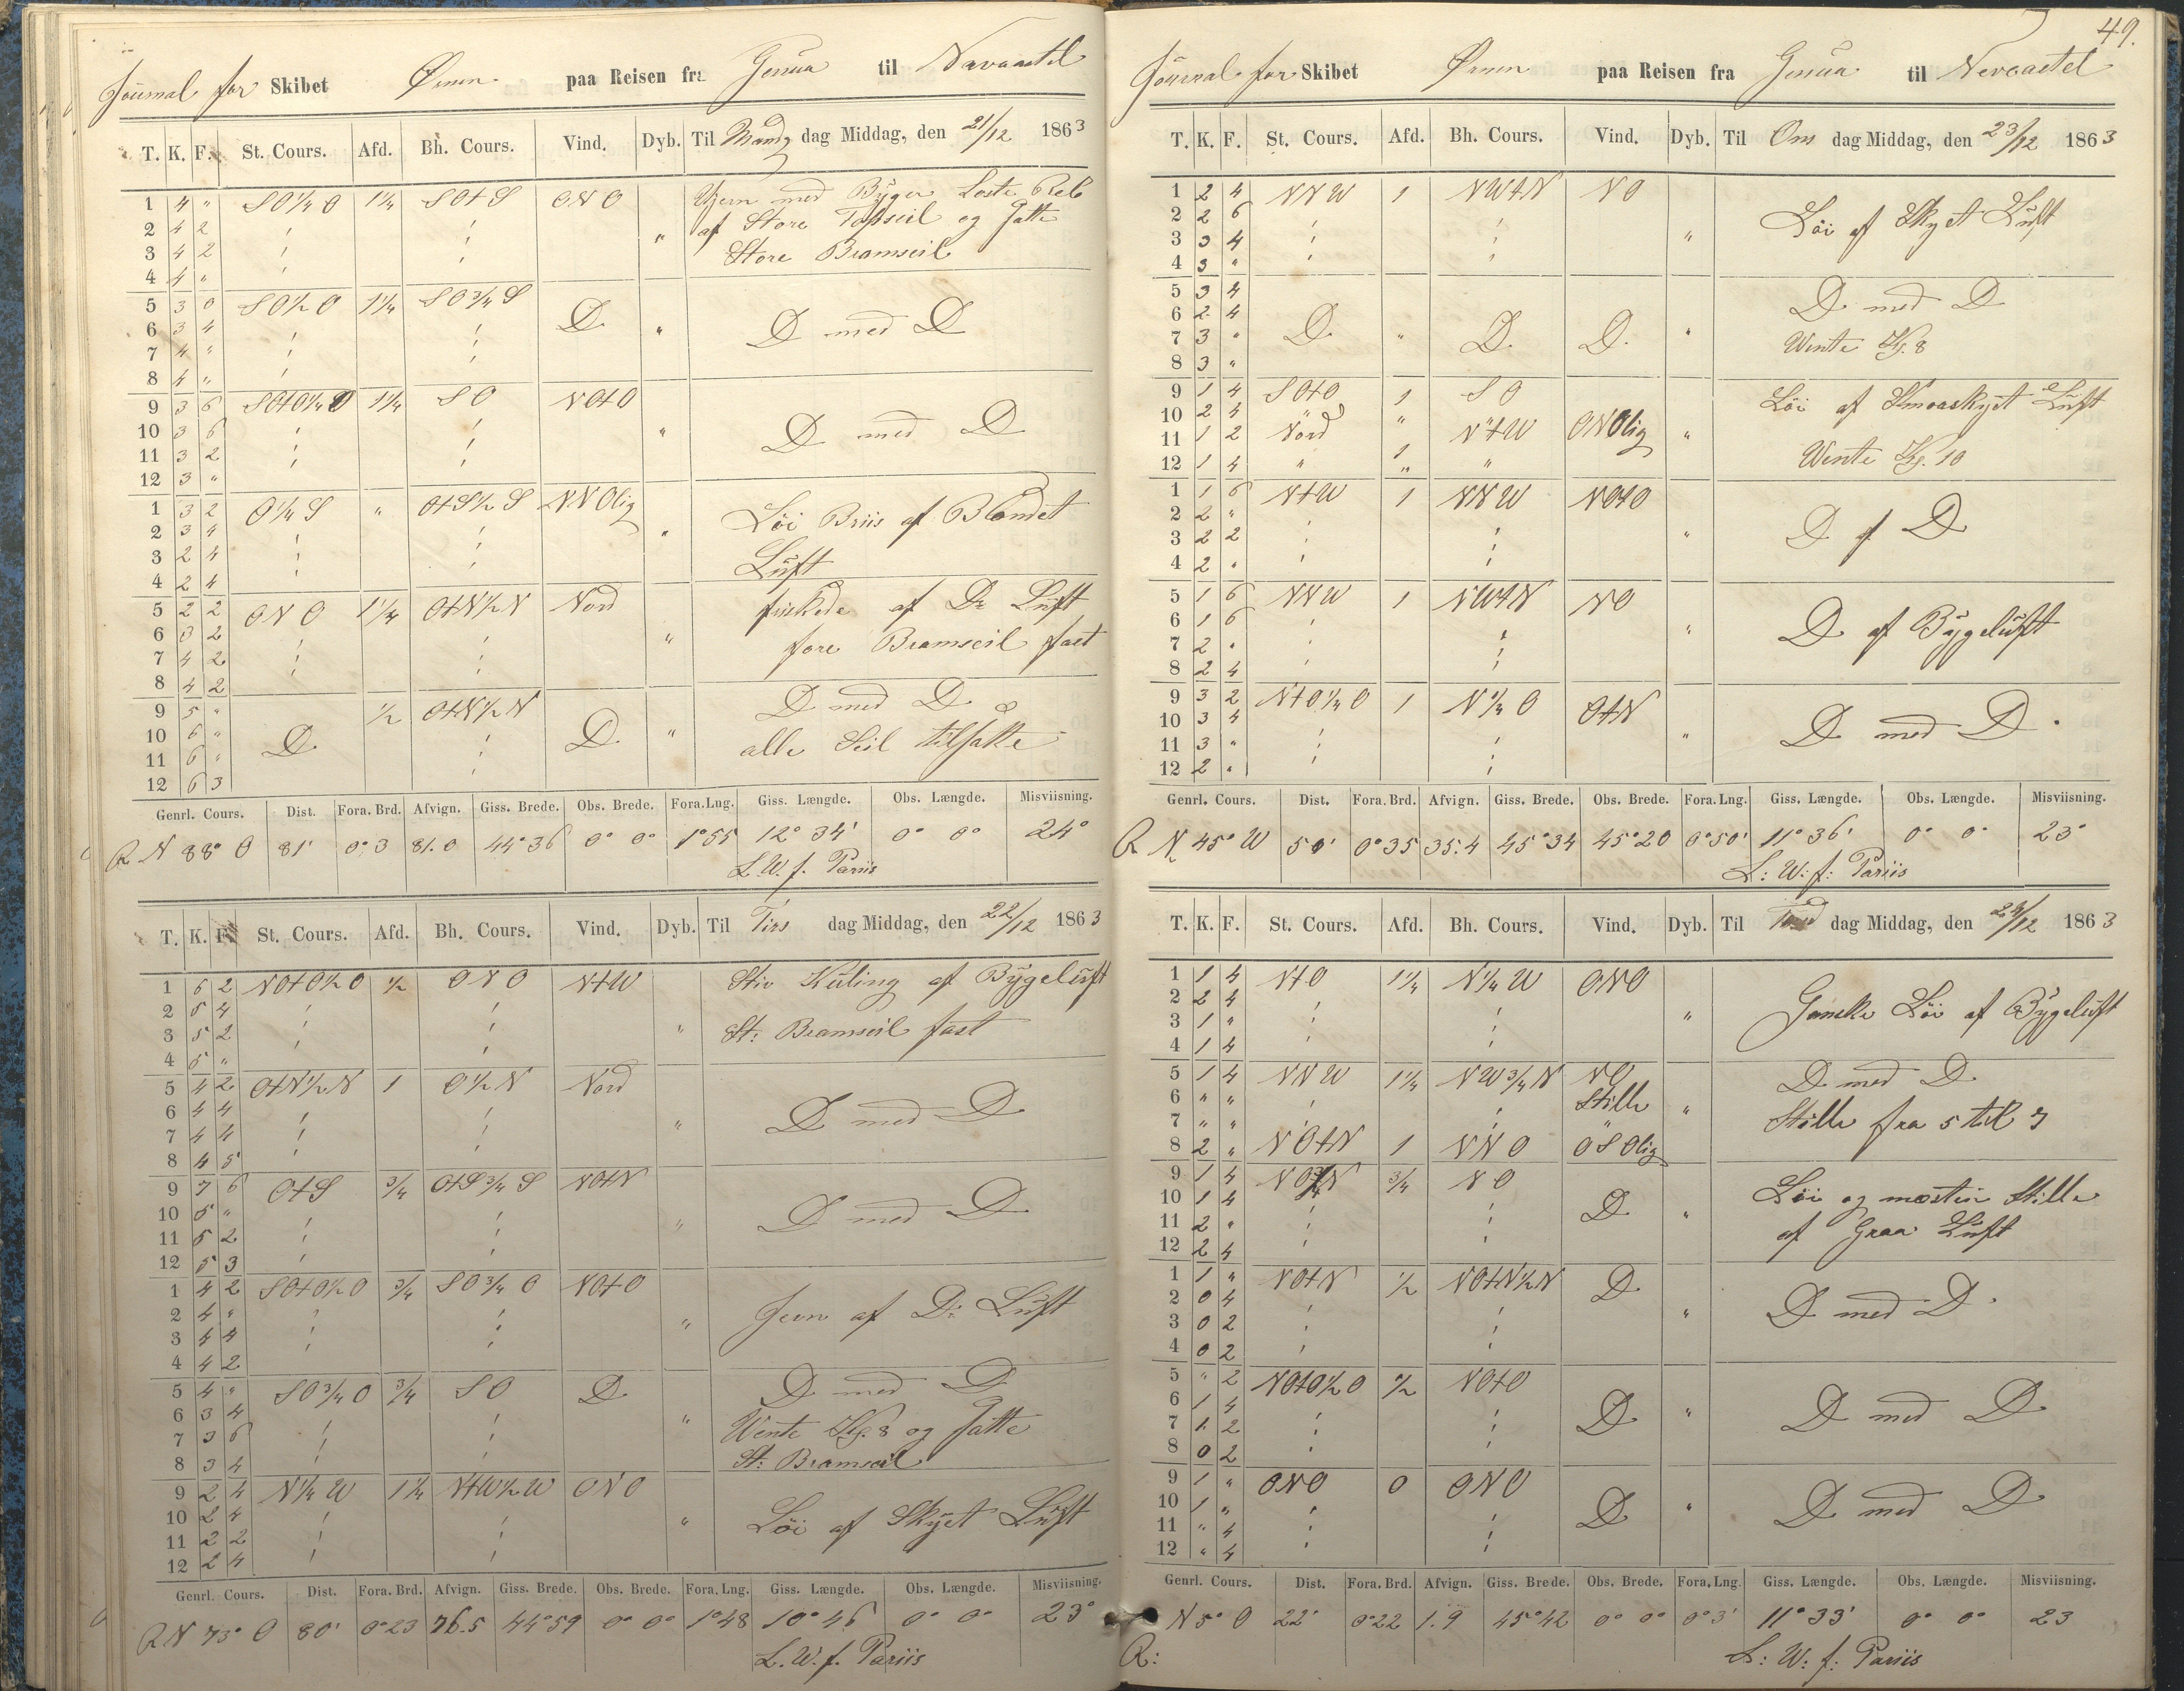 Journal for Skibet Ørnen paa Reisen fra Genua til Nevcastel
T. K. F. St. Cours. Afd. Bh. Cours. Vind. Dyb. Til Mand dag Middag, den 21/12 1863
1 4 " SO¼O 1¼ SOtS ONO Ujevn med Byger Loste Reb
2 4 2 af Store Topseil og satte
3 4 2 " Store Bramseil
4 4 "
5 3 0 SO½O 1¼ SO¾S D D med D
6 3 4 "
7 4 "
8 4 "
9 3 6 SOtO¼O 1¼ SO NOtO D med D
10 3 6 "
11 3 2
12 3 "
1 3 2 O¼S " OtS½S NNOlig Löi Briis af Blandet
2 3 4 "
3 2 4 Luft
4 2 4
5 2 2 ONO 1¼ OtN½N Nord friskede af Do Luft
6 3 2 " fore Bramseil fast
7 4 2
8 4 2
9 5 " D ½ OtN½N D " D med D
10 6 " alle Seil tilsatte
11 6 "
12 6 3
Genrl. Cours. Dist. Fora. Brd. Afvign. Giss. Brede. Obs. Brede. Fora. Lng. Giss. Længde. Obs. Længde. Misviisning.
R N 88° O 81' 0°3 81.0 44°36 0° 0° 1°55 12° 34' 0° 0° 24°
L. W. f. Pariis
T. K. F. St. Cours. Afd. Bh. Cours. Vind. Dyb. Til Tirs dag Middag, den 22/12 1863
1 6 2 NOtO½O ½ ONO NtW Stiv Kuling af Bygeluft
2 5 4
3 5 2 " St: Bramseil fast
4 5 "
5 4 2 OtN½N 1 O½N Nord D med D
6 4 4
7 4 4 "
8 4 5
9 7 6 OtS ¾ OtS¾S NOtN D med D
10 5 "
11 5 2 "
12 5 3
1 4 2 SOtO½O ¾ SO¾O NOtO Jevn af D: Luft
2 4 "
3 4 4 "
4 4 2
5 4 " SO¾O ¾ SO D D med D
6 3 4 " Vente Kl. 8 og satte
7 3 6 St: Bramseil
8 3 4
9 2 4 N¼W 1¼ NtW½W ONO Löi af Skyet Luft
10 2 4 "
11 2 2
12 2 4
Genrl. Cours. Dist. Fora. Brd. Afvign. Giss. Brede. Obs. Brede. Fora. Lng. Giss. Længde. Obs. Længde. Misviisning.
R N 73° O 80' 0°23 76.5 44°59 0° 0° 1°48 10° 46 0° 0° 23°
L. W. f. Pariis
49.
Journal for Skibet Ørnen paa Reisen fra Genua til Nevcastel
T. K. F. St. Cours. Afd. Bh. Cours. Vind. Dyb. Til Ons dag Middag, den 23/12 1863
1 2 4 NNW 1 NWtN NO Löi af Skyet Luft
2 2 6
3 3 4 "
4 3 "
5 3 4 D med D
6 2 4 D " D D "
7 3 " Wente Kl. 8
8 3 "
9 1 4 SOtO 1 SO Löi af Smaaskyet Luft
10 2 4 Nord " NtW ONOlig
11 1 2 " "
12 1 4 " 1 " Wente Kl. 10
1 1 6 NtW 1 NNW NOtO D af D
2 2 "
3 2 2 "
4 2 "
5 1 6 NNW 1 NWtN NO D af Bygeluft
6 1 6 "
7 2 "
8 2 4
9 3 2 NtO¼O 1 N¼O OtN D med D
10 3 4
11 3 " "
12 2 "
Genrl. Cours. Dist. Fora. Brd. Afvign. Giss. Brede. Obs. Brede. Fora. Lng. Giss. Længde. Obs. Længde. Misviisning.
R N 45° W 50' 0°35 35.4 45°34 45°20 0°50' 11° 36' 0° 0° 23°
L: W: f: Pariis
T. K. F. St. Cours. Afd. Bh. Cours. Vind. Dyb. Til dag Middag, den 24/12 1863
1 1 4 NtO 1¼ N¼W ONO Ganske Löi af Bygeluft
2 2 4
3 1 " "
4 1 4
5 1 4 NNW 1¼ NW¾N NO D med D
6 " " Stille " Stille fra 5 til 7
7 " " "
8 2 " NOtN 1 NNO OSOlig
9 1 4 ¾ NO Löi og mæsten Stille
10 1 4 D "
11 2 " af Graa Luft
12 2 4
1 1 " NOtN ½ NOtN½N D D med D
2 0 4 "
3 0 2
4 0 2
5 " 2 NOtO½O ½ NOtO D med D
6 1 4 D "
7 1 2
8 0 2
9 1 " ONO 0 ONO D med D
10 1 " D "
11 " 4
12 " 4
Genrl. Cours. Dist. Fora. Brd. Afvign. Giss. Brede. Obs. Brede. Fora. Lng. Giss. Længde. Obs. Længde. Misviisning.
N 5° O 22' 0°22 1.9 45°42 0° 0° 0°3' 11° 33' 0° 0° 23
R: L: W: f: Pariis